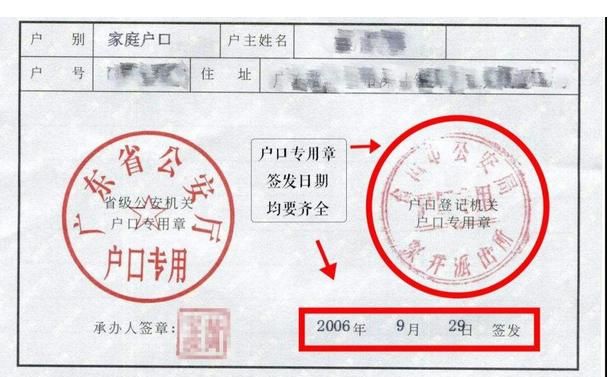 户 别 家庭户口 户主姓名
户 号 住 址
广东省公安厅
省级公安机关
户口专用章
户口专用
户口专用章
签发日期
均要齐全
市公安局
户口登记机关
户口专用章
派出所
承办人签章：
2006年 9月 29日 签发